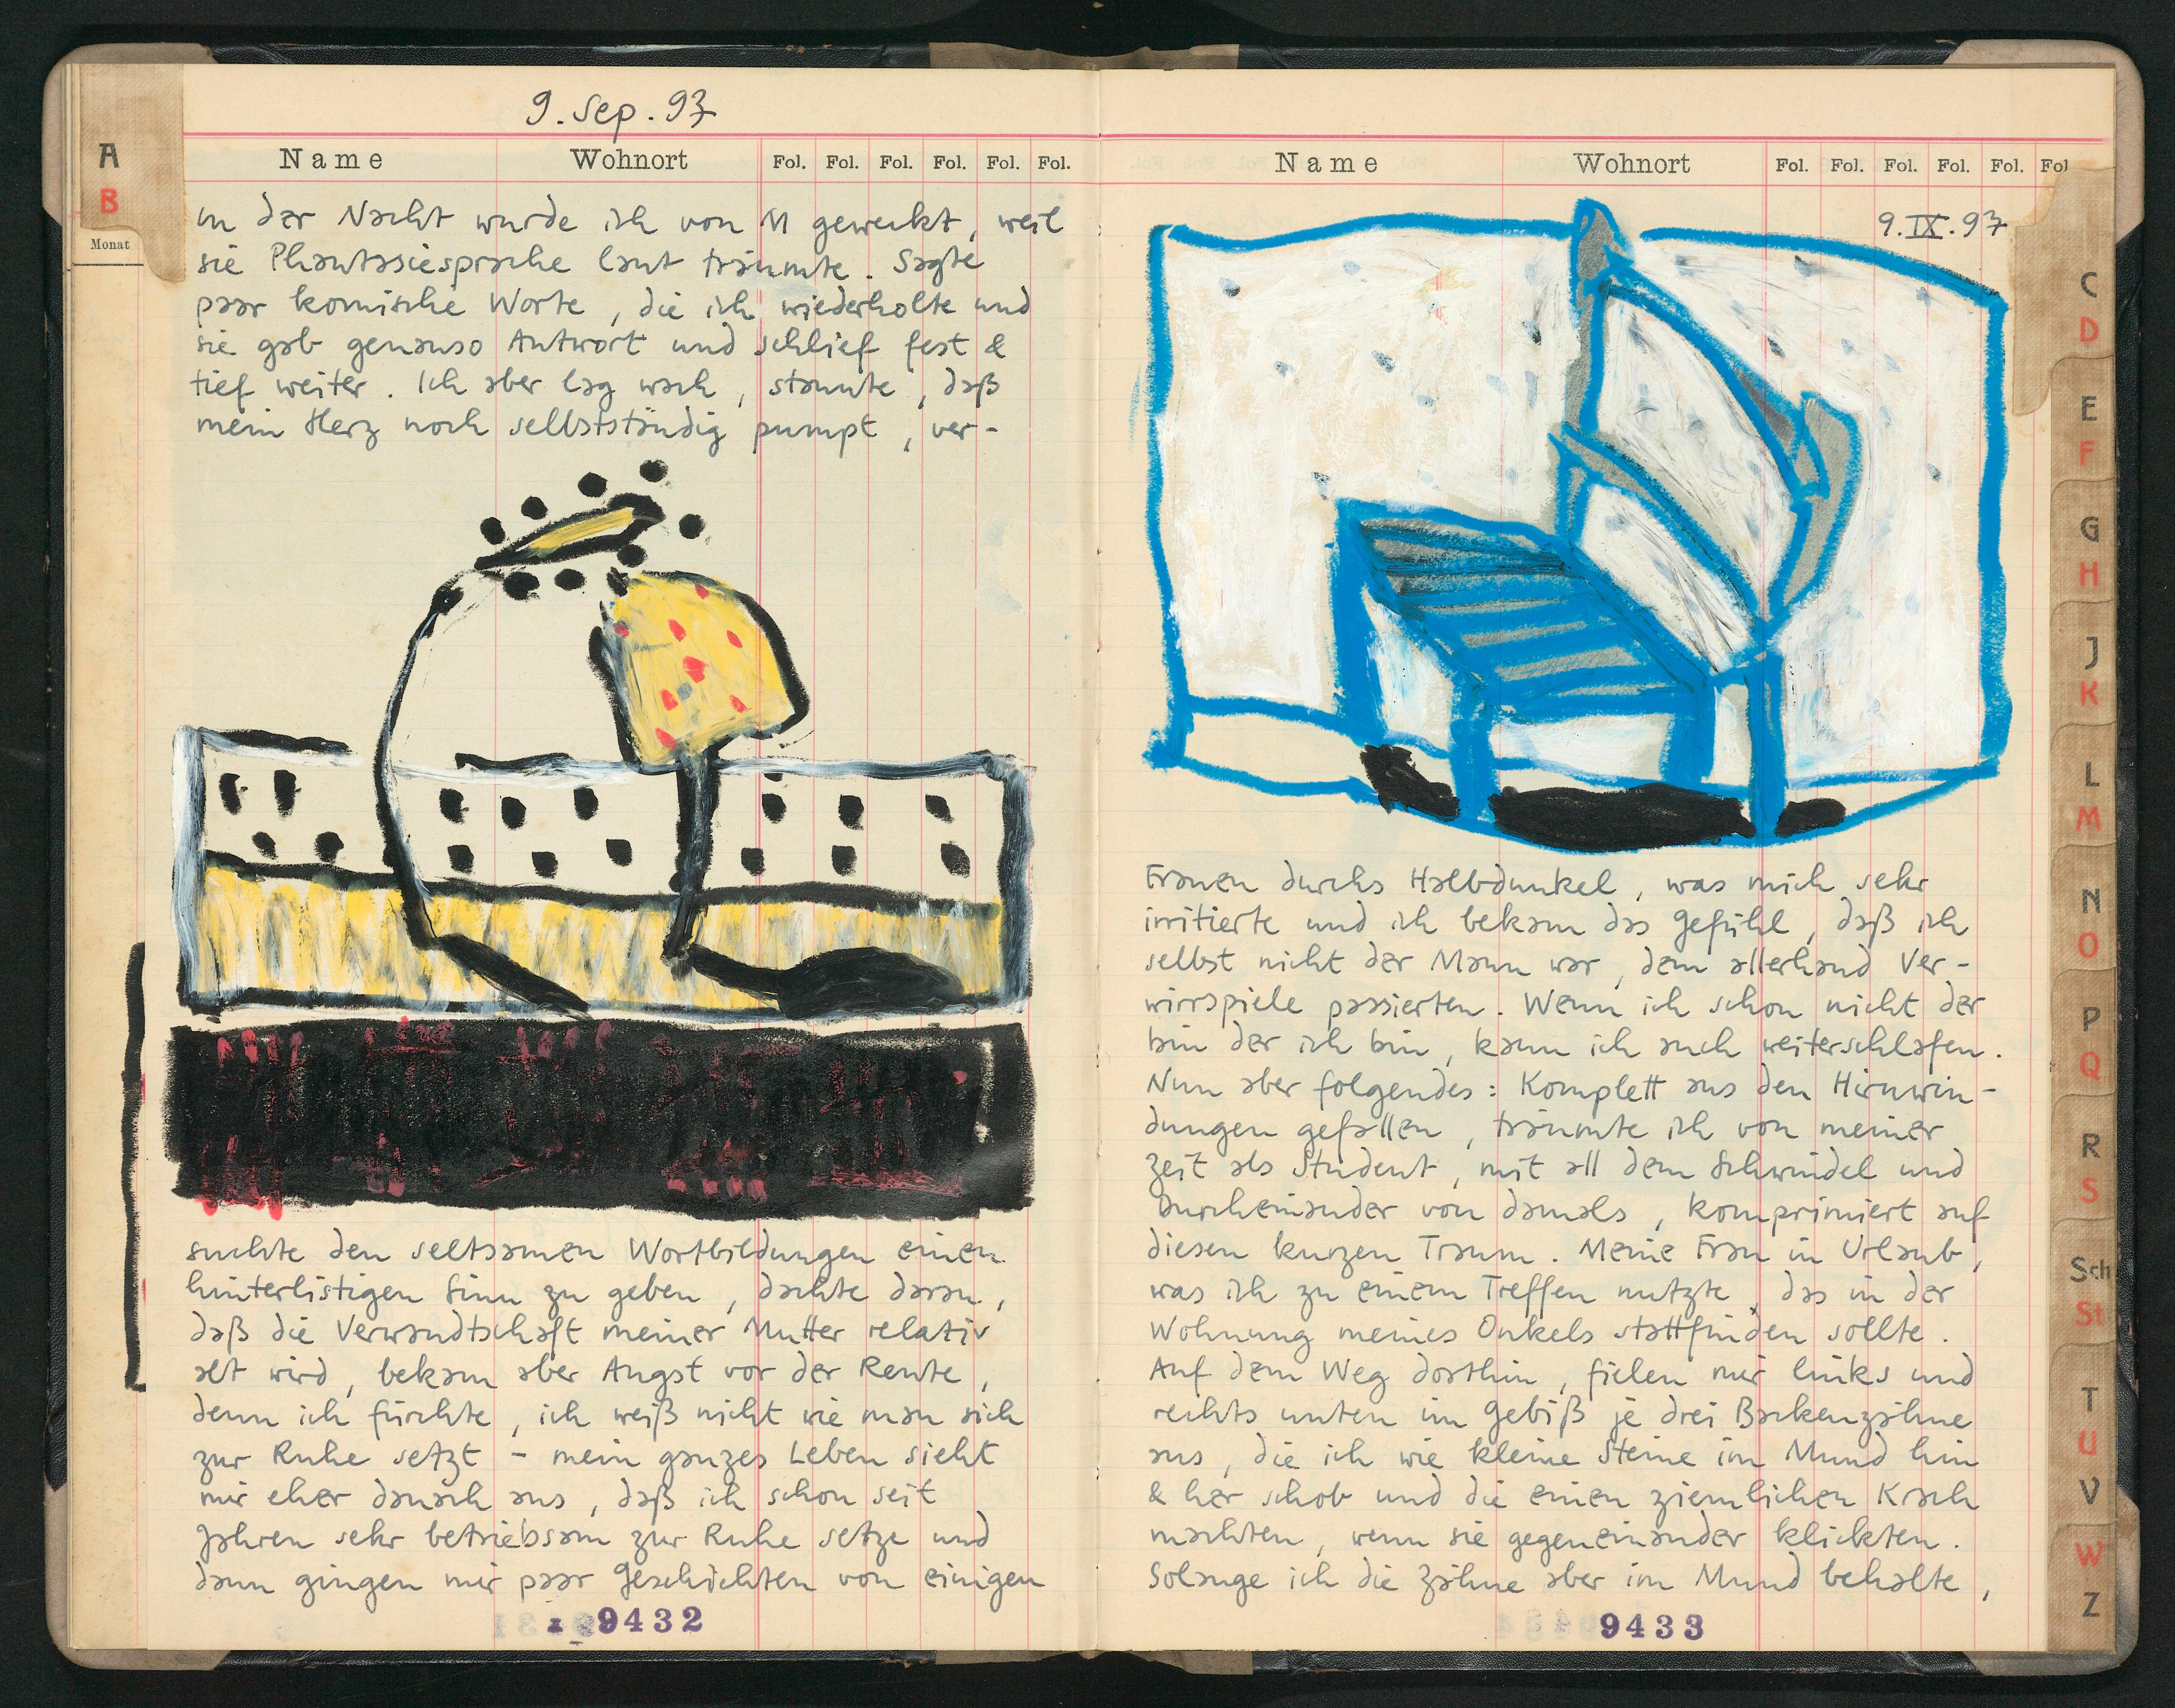 9. Sep. 97
A
B
Monat
Name Wohnort Fol. Fol. Fol. Fol. Fol. Fol.
in der Nacht wurde ich von M geweckt, weil
sie Phantasiesprache laut träumte. Sagte
paar komische Worte, die ich wiederholte und
sie gab genauso Antwort und schlief fest &
tief weiter. Ich aber lag wach, staunte, daß
mein Herz noch selbstständig pumpt, ver-
suchte den seltsamen Wortbildungen einen
hinterlistigen Sinn zu geben, dachte daran,
daß die Verwandtschaft meiner Mutter relativ
alt wird, bekam aber Angst vor der Rente,
denn ich fürchte, ich weiß nicht wie man sich
zur Ruhe setzt - mein ganzes Leben sieht
mir eher danach aus, daß ich schon seit
Jahren sehr betriebsam zur Ruhe setze und
dann gingen mir paar Geschichten von einigen
9432
Name Wohnort Fol. Fol. Fol. Fol. Fol. Fol
9.IX.97
Frauen durchs Halbdunkel, was mich sehr
irritierte und ich bekam das Gefühl, daß ich
selbst nicht der Mann war, dem allerhand Ver-
wirrspiele passierten. Wenn ich schon nicht der
bin der ich bin, kann ich auch weiterschlafen.
Nun aber folgendes: Komplett aus den Hirnwin-
dungen gefallen, träumte ich von meiner
Zeit als Student, mit all dem Schwindel und
Durcheinander von damals, komprimiert auf
diesen kurzen Traum. Meine Frau in Urlaub,
was ich zu einem Treffen nutzte, das in der
Wohnung meines Onkels stattfinden sollte.
Auf dem Weg dorthin, fielen mir links und
rechts unten im Gebiß je drei Backenzähne
aus, die ich wie kleine Steine im Mund hin
& her schob und die einen ziemlichen Krach
machten, wenn sie gegeneinander klickten.
Solange ich die Zähne aber im Mund behalte,
9433
C
D
E
F
G
H
J
K
L
M
N
O
P
Q
R
S
Sch
St
T
U
V
W
Z